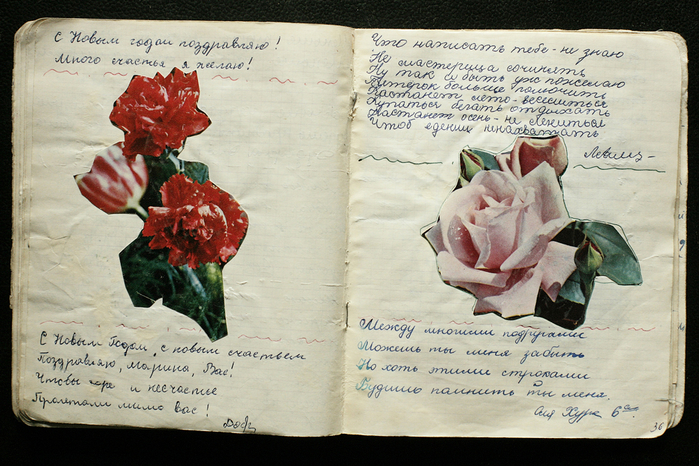 С Новым годом поздравляю!
Много счастья я желаю!
С Новым Годом, с новым счастьем
Поздравляю, Марина, Вас!
Чтобы горе и несчастье
Пролетали мимо вас!
Что написать тебе - не знаю
Не мастерица сочинять
Ну так и быть уж пожелаю
Пятерок больше получить
Настанет лето - веселиться
Купаться бегать отдыхать
Настанет осень - не лениться
Чтоб едениц нехватать
Между многими подругами
Можешь ты меня забыть
Но хоть этими строками
Будишь помнить ты меня.
6
36